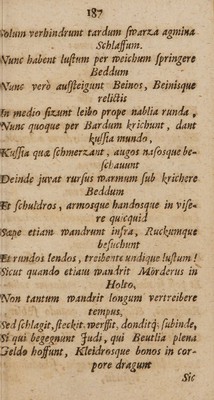 187
Solum verhindrunt tardum swarza agmina
Schlaffum.
Nunc habent lustum per weichum springere
Beddum
Nunc verò aussteigunt Beinos, Beinisque
relictis
In medio sizunt leibo prope nablia runda,
Nunc quoque per Bardum krichunt, dant
kussia mundo,
Kussia quæ schmerzant, augos nasosque be-
schauunt
Deinde juvat rursus warmum sub krichere
Beddum
Et schuldros, armosque handosque in vise-
re quicquid
Sæpe etiam wandrunt infra, Ruckumque
besuchunt
Et rundos lendos, treibente undique lustum!
Sicut quando etiam wandrit Mörderus in
Holto,
Non tantum wandrit longum vertreibere
tempus,
Sed schlagit, steckit, werffit, donditq; subinde,
Si qui begegnunt Judi, qui Beutlia plena
Geldo hoffunt, Kleidrosque bonos in cor-
pore dragunt
Sic